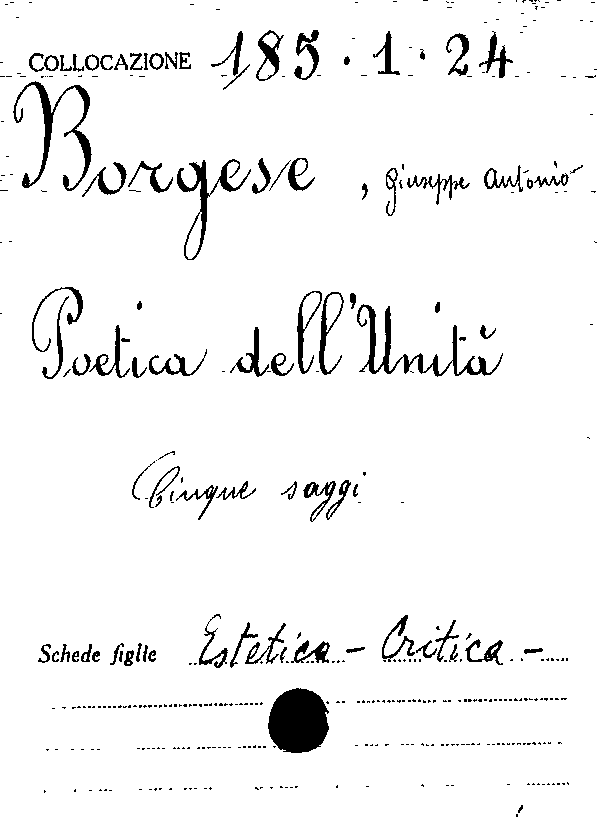 COLLOCAZIONE 185.1.24
Borgese, Giuseppe Antonio
Poetica dell'Unità
Cinque saggi
Schede figlie Estetica - Critica -